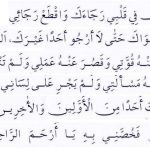 فِي قَلْبِي رَجَاءَكَ وَاقْطَعْ رَجَائِي
وَاكَ حَتَّى لَا أَرْجُو أَحَدًا غَيْرَكَ. ال
عَنْهُ قُوَّتِي وَقَصُرَ عَنْهُ عَمَلِي وَلَمْ
هُ مَسْأَلَتِي وَلَمْ يَجْرِ عَلَى لِسَانِي
تَ أَحَدًا مِنَ الْأَوَّلِينَ وَالْآخِرِينَ
فَخُصَّنِي بِهِ يَا أَرْحَمَ الرَّاحِ